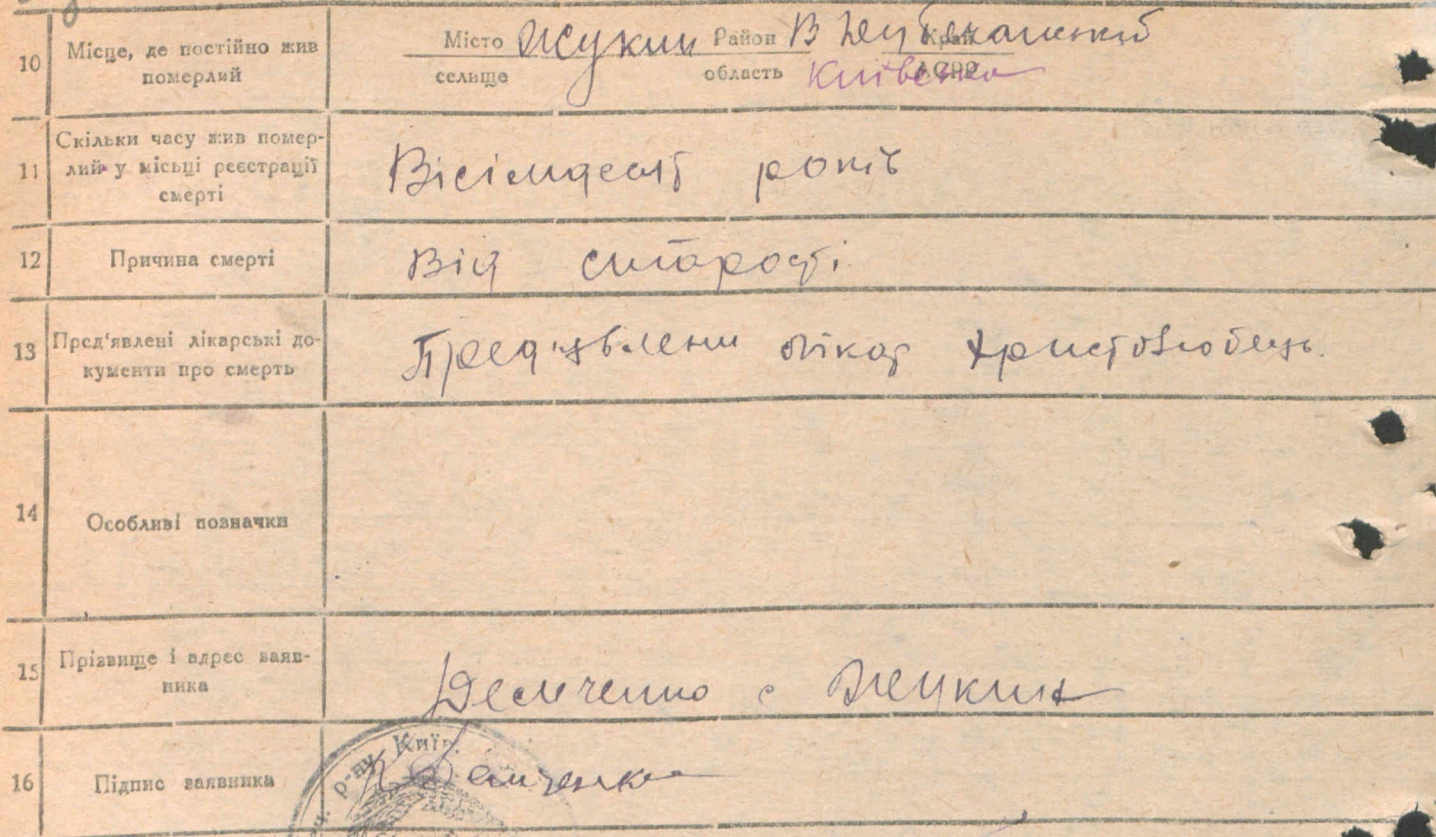 10 Місце, де постійно жив померлий Місто Жукин Район В Дубечанський Край
селище область Київська АСРР
11 Скільки часу жив помер-
лий у місьці реєстрації
смерті
Вісімдесят років
12 Причина смерті Від старості.
13 Пред'явлені лікарські до-
кументи про смерть
Пред'явлени лікар Христолюбець.
14 Особливі позначки
15 Прізвище і адрес заяв-
ника
Демченко с Жукин
р-ну Київ.
16 Підпис заявника Демченко